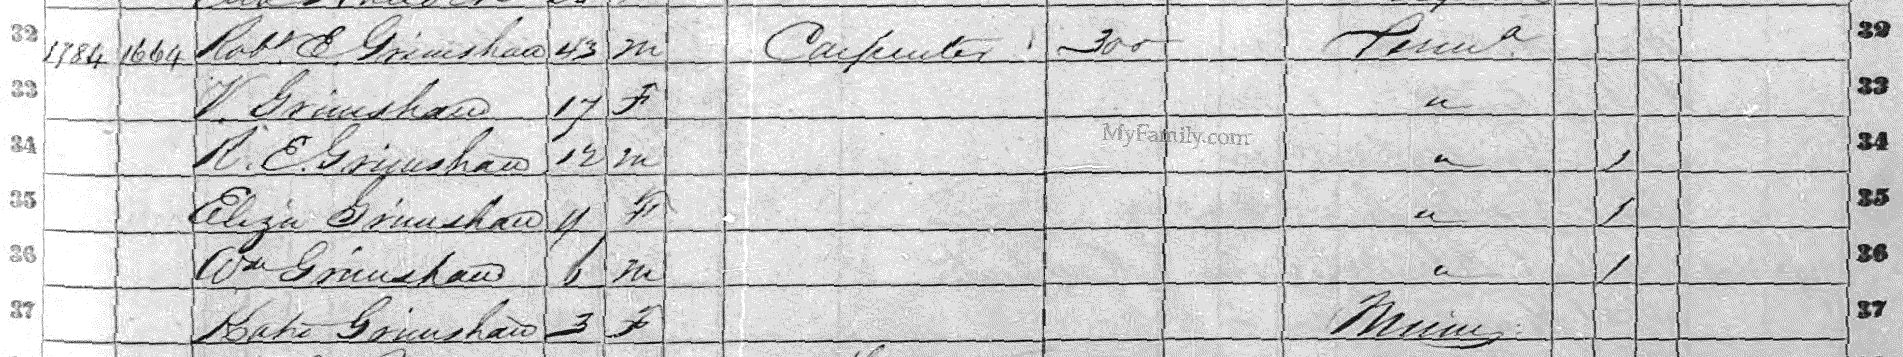 32 1784 1664 Robt. E Grimshaw 43 m Carpenter 300 Penna 32
33 V. Grimshaw 17 F " 33
MyFamily.com
34 R. E. Grimshaw 12 m " 1 34
35 Eliza Grimshaw 9 F " 1 35
36 Wm Grimshaw 6 m " 1 36
37 Kate Grimshaw 3 F 37